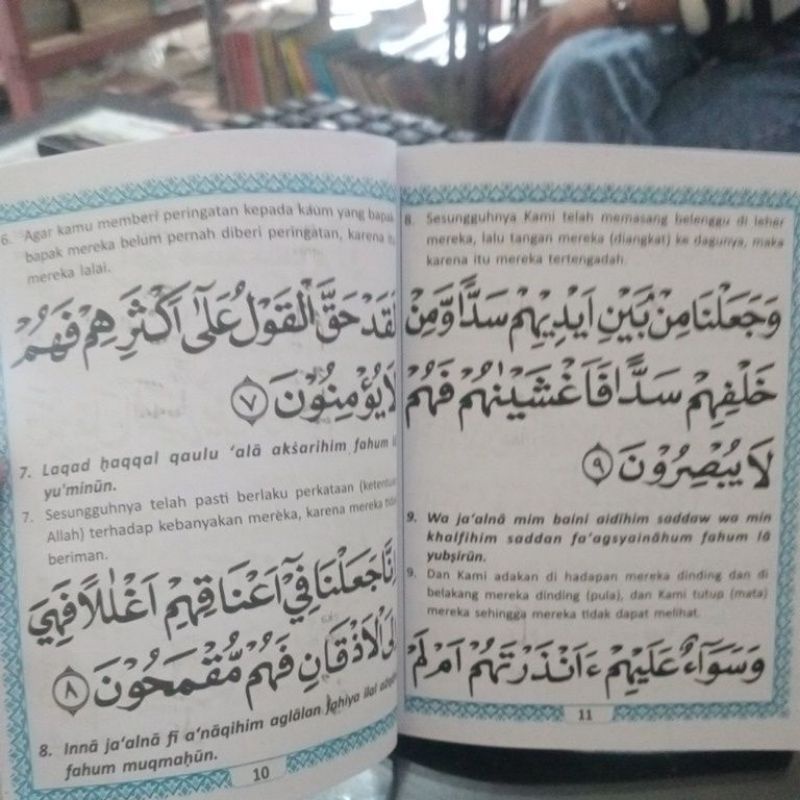 6. Agar kamu memberi peringatan kepada kaum yang bapak
bapak mereka belum pernah diberi peringatan, karena itu
mereka lalai.
لَقَدْ حَقَّ الْقَوْلُ عَلٰٓى اَكْثَرِهِمْ فَهُمْ
لَا يُؤْمِنُوْنَ ٧
7. Laqad ḥaqqal qaulu ‘alā akṡarihim fahum
yu’minūn.
7. Sesungguhnya telah pasti berlaku perkataan (ketentuan
Allah) terhadap kebanyakan mereka, karena mereka tidak
beriman.
اِنَّا جَعَلْنَا فِيْٓ اَعْنَاقِهِمْ اَغْلٰلًا فَهِيَ
اِلَى الْاَذْقَانِ فَهُمْ مُّقْمَحُوْنَ ٨
8. Innā ja‘alnā fī a‘nāqihim aglālan fahiya ilal
fahum muqmaḥūn.
10
8. Sesungguhnya Kami telah memasang belenggu di leher
mereka, lalu tangan mereka (diangkat) ke dagunya, maka
karena itu mereka tertengadah.
وَجَعَلْنَا مِنْۢ بَيْنِ اَيْدِيْهِمْ سَدًّا وَّمِنْ
خَلْفِهِمْ سَدًّا فَاَغْشَيْنٰهُمْ فَهُمْ
لَا يُبْصِرُوْنَ ٩
9. Wa ja‘alnā mim baini aidīhim saddaw wa min
khalfihim saddan fa’agsyaināhum fahum lā
yubṣirūn.
9. Dan Kami adakan di hadapan mereka dinding dan di
belakang mereka dinding (pula), dan Kami tutup (mata)
mereka sehingga mereka tidak dapat melihat.
وَسَوَآءٌ عَلَيْهِمْ ءَاَنْذَرْتَهُمْ اَمْ لَمْ
11